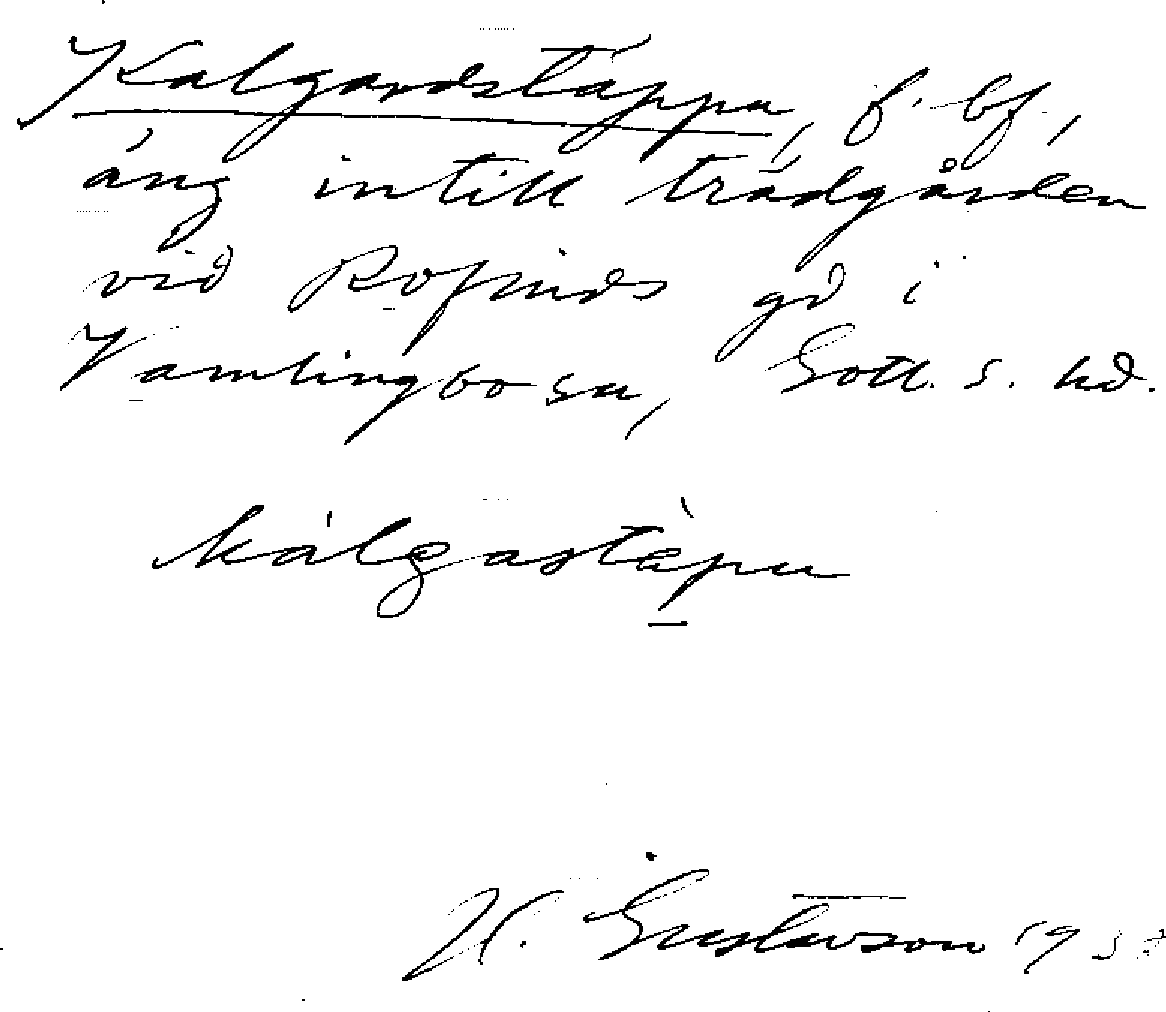 Kalgardstäppu, f. bf,
äng intill trädgården
vid Rofinds gd i
Vamlingbo sn, Gotl. s. hd.
kálgastèpu
H. Gustavson